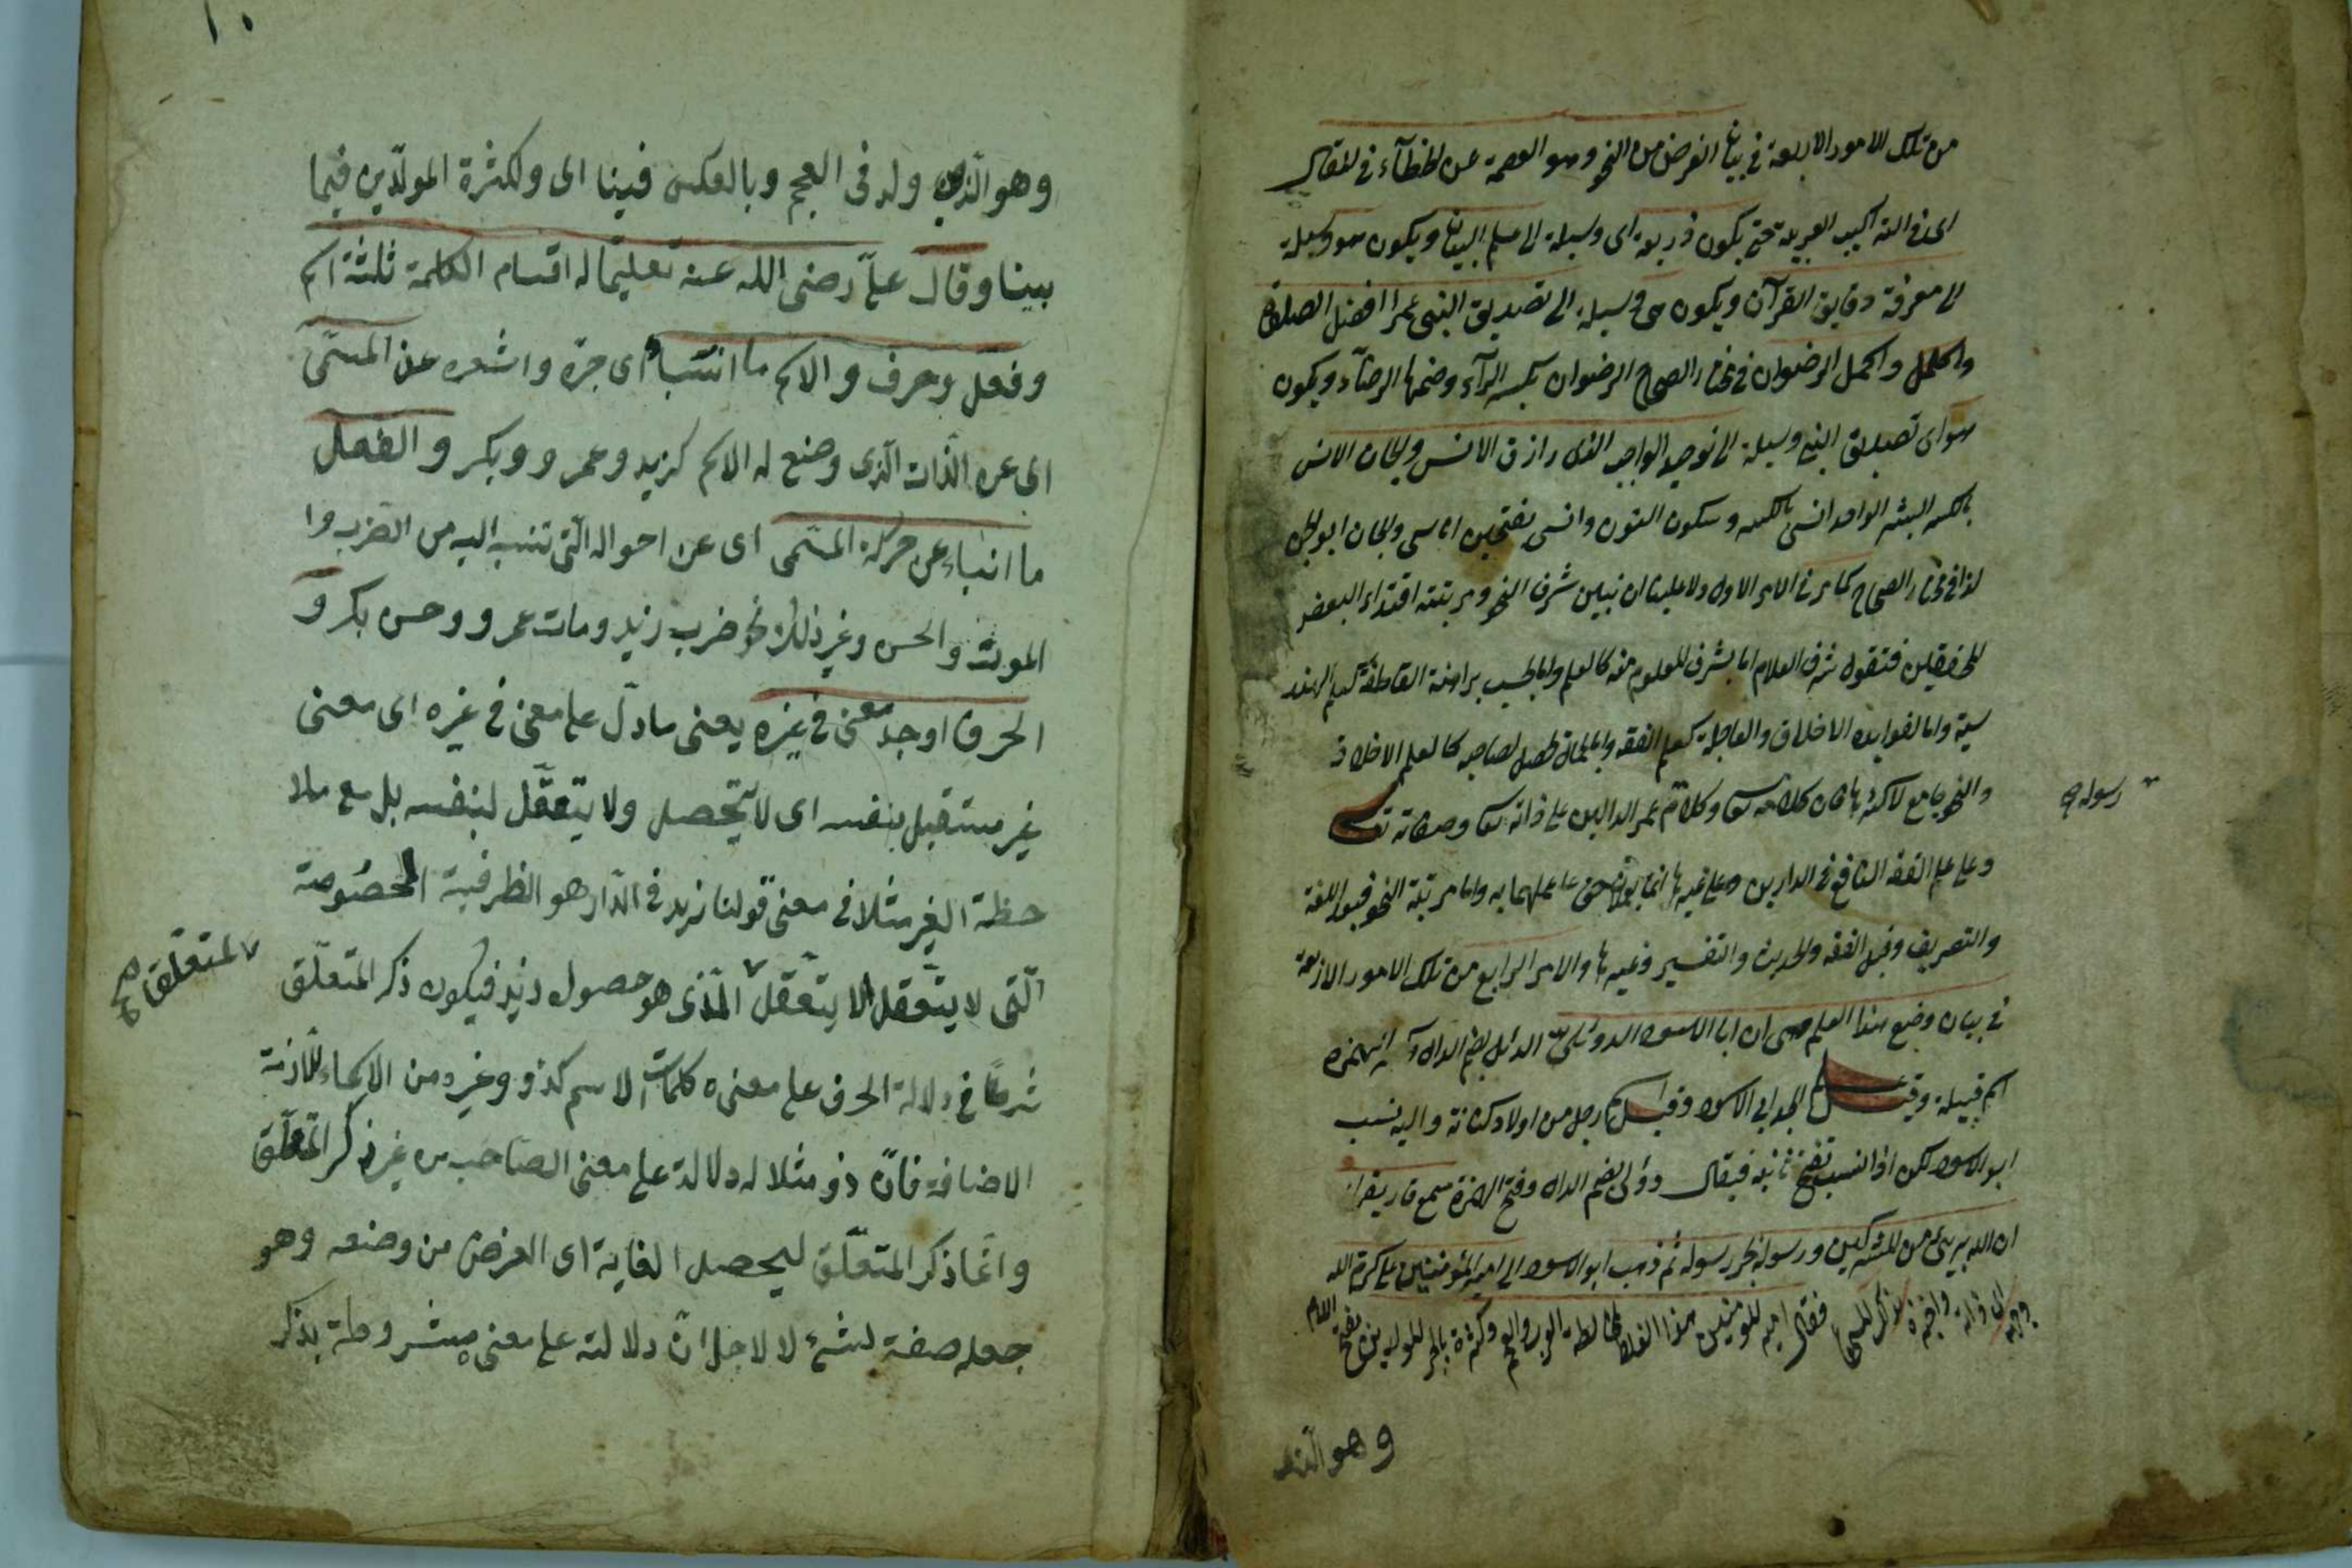 من تلك الامور الاربعة في بيان الغرض من النحو وهو العصمة عن الخطاء في المقال
اى في التراكيب العربية حتى يكون ذريعة اى وسيلة الى علم البيان ويكون هو وسيلة
الى معرفة دقايق القرآن ويكون هى وسيلة الى تصديق النبى عم افضل الصلوة
واكمل الرضوان في مختار الصحاح الرضوان بكسر الرآء وضمها الرضآء ويكون
هو اى تصديق النبى وسيلة الى توحيد الواجب الذى رازق الانس والجان الانس
بالكسر البشر الواحد انسى بالكسر وسكون النون وانسى بفتحتين اناسى والجان ابو الجن
كذا في مختار الصحاح كما مر في الامر الاول ولا علينا ان نبين شرف النحو ومرتبته اقتداء لبعض
المحققين فنقول شرف العلم اما بشرف المعلوم منه كالعلم واما بحسب براهنه القاطعة كعلم الهند
سية واما لفوايده الاخلاق والعاجلة كعلم الفقه واما لكمال تحصل لصاحبه كالعلم الاخلاق
والنحو جامع لاكثرها فان كلامه تعا وكلام عم الدالين على ذاته تعا وصفاته تعا
رسوله صح
وعلى علم الفقه النافع في الدارين وعلى غيرها انما واما مرتبة النحو فبعد اللغة
والتصريف وقبل الفقه والحديث والتفسير وغيرها والامر الرابع من تلك الامور الاربعة
في بيان وضع هذا العلم وهى ان ابا الاسود الدوئلى الدئل بضم الدال الهمزة
اسم قبيلة وقيل لجد ابى الاسود وقيل اسم رجل من اولاد كنانة واليه ينسب
ابو الاسود لكن اذا انسب تفتح ثانيه فيقال دوئلى بضم الدال وفتح الهمزة سمع قاريقرا
ان الله برىء من المشركين ورسوله بجر رسوله ثم ذهب ابو الاسود الى امير المؤمنين على كرم الله
وجهه اى ذاته واخبره فقال امير المؤمنين هذا لمخالطة العرب والعجم وكثرة بالجر المولدين بفتح اللام
وهو الذى
١٠
وهو الذى ولد فى العجم وبالعكس فينا اى ولكثرة المولّدين فيما
بينا وقال علىّ رضى الله عنه تعليمًا له اقسام الكلمة ثلثة اسم
وفعل وحرف والاسم ما انباء اى خبره واشعره عن المسمّى
اى عن الذات الّذى وضع له الاسم كزيد وعمرو وبكر والفعل
ما انباء عن حركة المسمّى اى عن احواله الّتى تنسب اليه من الضرب وا
الموت والحسن وغير ذلك نحو ضرب زيد ومات عمرو وحسن بكر و
الحرف اوجد معنى فى غيره يعنى ما دلّ على معنى فى غيره اى معنى
غير مستقبل بنفسه اى لا يتحصل ولا يتعقّل لبنفسه بل مع ملا
حظة الغير مثلا فى معنى قولنا زيد فى الدّار هو الظرفية المخصوصة
الّتى لا يتعقل الا يتعقّل الّذى هو حصول زيد فيكون ذكر المتعلّق
المتعلق صح
شرطا فى دلالة الحرف على معنىه كلمات الاسم كذو وغيره من الاسماء اللازمة
الاضافة فانّ ذو مثلا له دلالة على معنى الصاحب من غير ذكر المتعلّق
وانّما ذكر المتعلّق ليحصل الغاية اى الغرض من وضعه وهو
جعله صفة لشئ لا لاجل انّ دلالته على معنى مشروطة بذكر